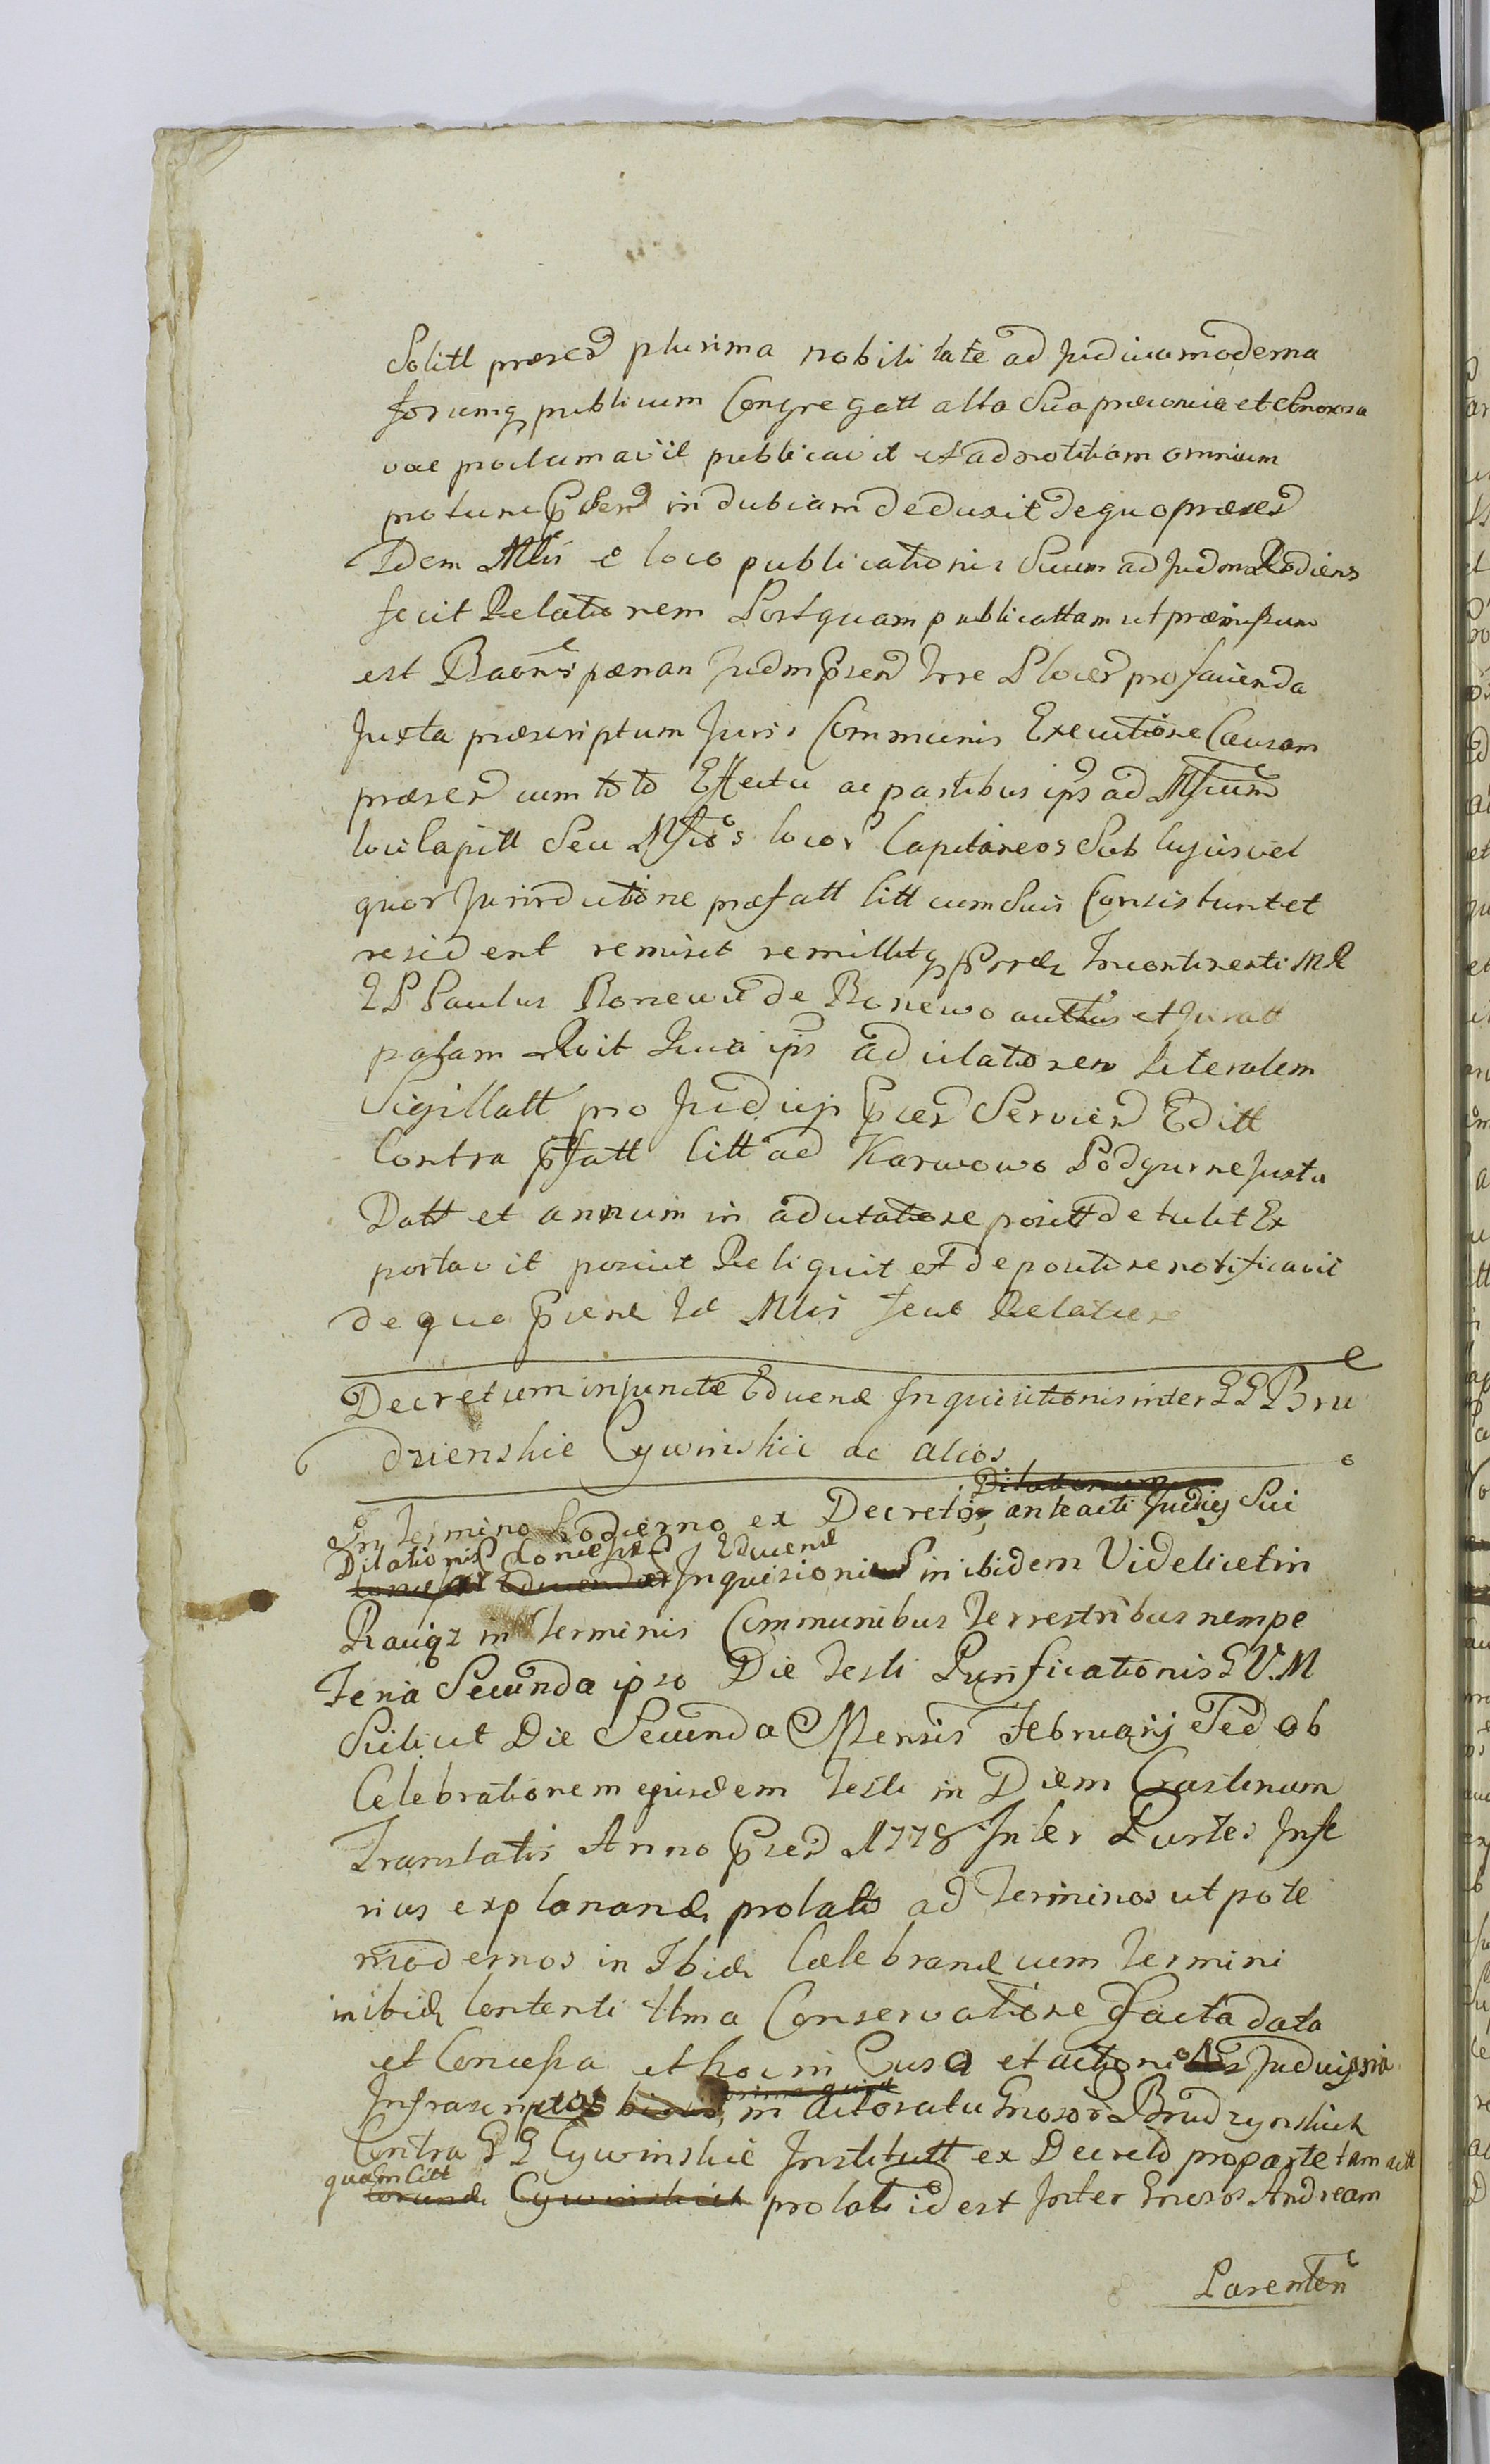 Solitt præsed plurima nobilitate ad Judicia moderna
forumq publicum Congregatt alta Sua præconia et Sonorosa
voce proclamavit publicavit et ad notitiam omnium
indubiam deduxit de quo præsed
Idem Mlis e loco publicationis Suum ad Judm Rediens
fecit Relationem Postquam publicattam ut præmissum
est Baonis pænam Judm præsen Trre Ploced pro facienda
Juxta præscriptum Juris Communis Executione Causam
præsed cum toto Effectu ac partibus ips ad Offcium
loci Capitt Seu Offcios locor Capitaneos Sub cujus vel
quor Jurisdictione præfatt Citt cum Suis Consistunt et
resident remisit remittitq Incontinenti M R
G P Paulus Boniewic de Boniewo autthus et Juratt
palam Rcit Quia ips adcitationem Literalem
Sigillatt pro Judicijs præsed Serviend Editt
Contra pfatt Citt ad Karwowo Podgurne Juxta
Datt et annum in adcitatione positt detulit Ex
portavit posuit Reliquit et de positione notificavit
de quo Id Mlis fecit Relatione
Decretum injunctæ Educend Inquisitionis inter GG Bru
dzienskie Cywinskie ac alios
Dilationum
In Termino hodierno ex Decretis anteacti Judicy Sui
Dilationis Concessæ Educend
Concessæ Educendæ Inquisionis in ibidem Videlicet in
Raciąz in Terminis Communibus Terrestribus nempe
Feria Secunda ipso Die Festi Purificationis B V. M
Scilicet Die Secunda Mensis February Sed ob
Celebrationem ejusdem Festi in Diem Crastinum
Translatis Anno præsed 1778 Inter Partes Infe
rius explanand prolatis ad Terminos utpote
modernos in Ibid Celebrand cum Termini
inibid Contenti Ilma Conservatione Facta data
et Concessa et hoc in Causa et actione
Infrascriptos in Actoratu Gnosor Brudzynskich
Contra GG Cywinskie Institutt ex Decreto pro parte tam actt
quam Citt
Cywinskich prolati id est Inter Gnosos Andream
Parenten